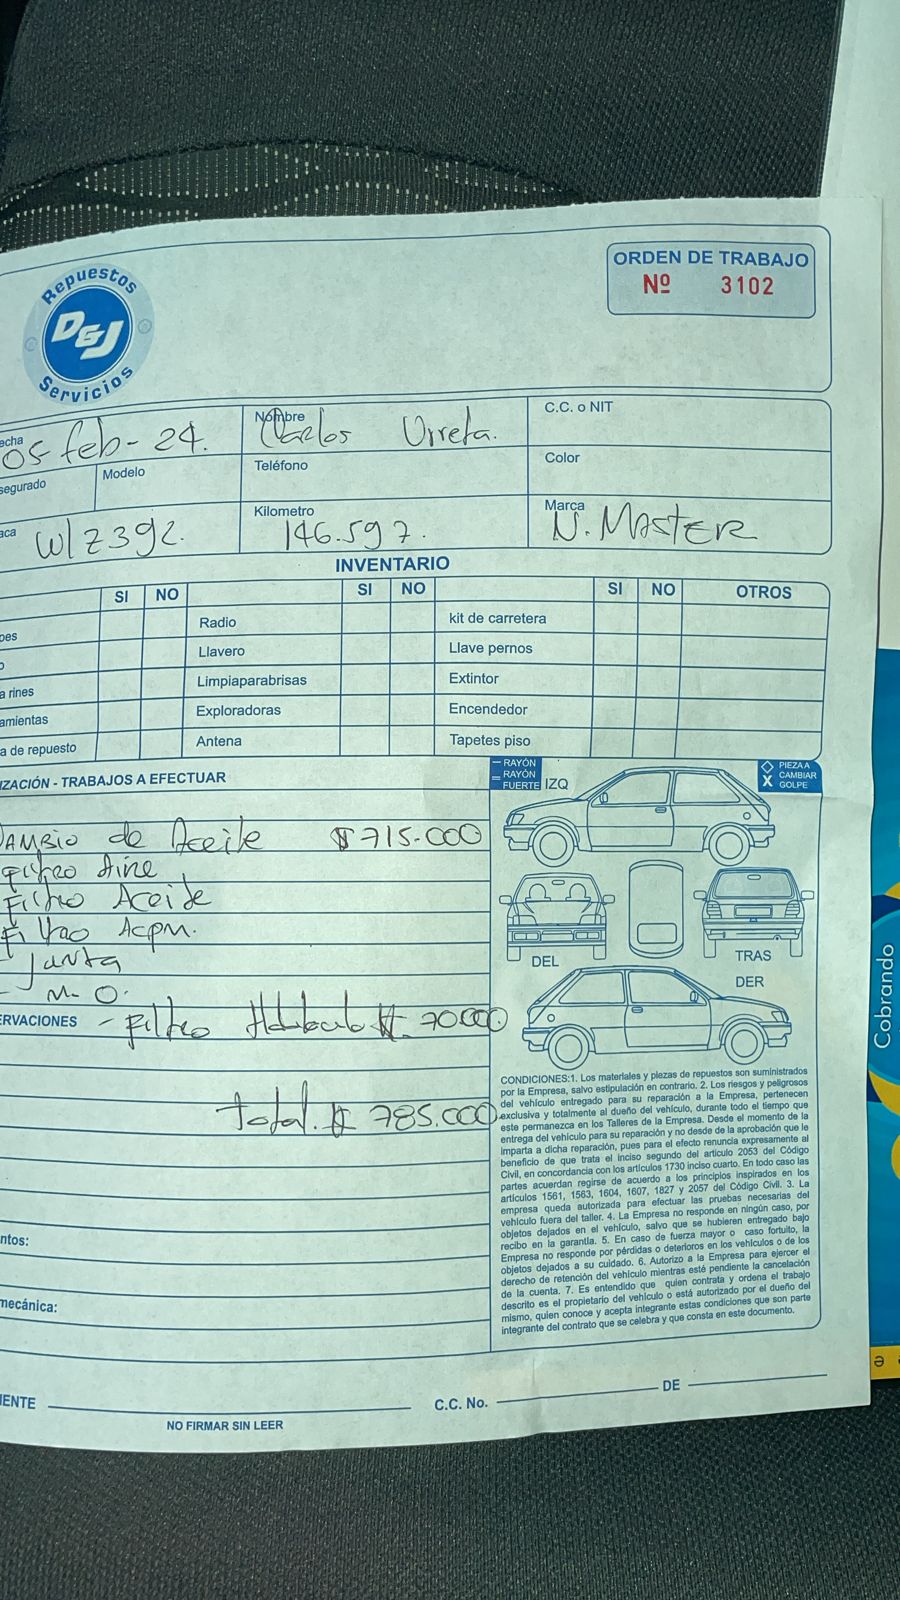 Repuestos
D&J
Servicios
ORDEN DE TRABAJO
Nº 3102
echa
05 feb-24.
Nombre
Carlos Urreta.
C.C. o NIT
segurado
Modelo
Teléfono
Color
aca
WLZ392.
Kilometro
146.597.
Marca
N. MASTER
INVENTARIO
SI NO SI NO SI NO OTROS
pes Radio kit de carretera
o Llavero Llave pernos
a rines Limpiaparabrisas Extintor
amientas Exploradoras Encendedor
a de repuesto Antena Tapetes piso
IZACIÓN - TRABAJOS A EFECTUAR
CAMBIO de Aceite $715.000
Filtro Aire
Filtro Aceite
Filtro Acpm.
- Junta
- M. O.
ERVACIONES - Filtro $ 70.000
total. $ 785.000
ntos:
mecánica:
RAYÓN
RAYÓN
FUERTE
IZQ
PIEZA A
CAMBIAR
X GOLPE
DEL
TRAS
DER
CONDICIONES:1. Los materiales y piezas de repuestos son suministrados
por la Empresa, salvo estipulación en contrario. 2. Los riesgos y peligrosos
del vehículo entregado para su reparación a la Empresa, pertenecen
exclusiva y totalmente al dueño del vehículo, durante todo el tiempo que
este permanezca en los Talleres de la Empresa. Desde el momento de la
entrega del vehículo para su reparación y no desde de la aprobación que le
imparta a dicha reparación, pues para el efecto renuncia expresamente al
beneficio de que trata el inciso segundo del artículo 2053 del Código
Civil, en concordancia con los artículos 1730 inciso cuarto. En todo caso las
partes acuerdan regirse de acuerdo a los principios inspirados en los
artículos 1561, 1563, 1604, 1607, 1827 y 2057 del Código Civil. 3. La
empresa queda autorizada para efectuar las pruebas necesarias del
vehículo fuera del taller. 4. La Empresa no responde en ningún caso, por
objetos dejados en el vehículo, salvo que se hubieren entregado bajo
recibo en la garantía. 5. En caso de fuerza mayor o caso fortuito, la
Empresa no responde por pérdidas o deterioros en los vehículos o de los
objetos dejados a su cuidado. 6. Autorizo a la Empresa para ejercer el
derecho de retención del vehículo mientras esté pendiente la cancelación
de la cuenta. 7. Es entendido que quien contrata y ordena el trabajo
descrito es el propietario del vehículo o está autorizado por el dueño del
mismo, quien conoce y acepta integrante estas condiciones que son parte
integrante del contrato que se celebra y que consta en este documento.
IENTE
C.C. No.
DE
NO FIRMAR SIN LEER
Cobrando